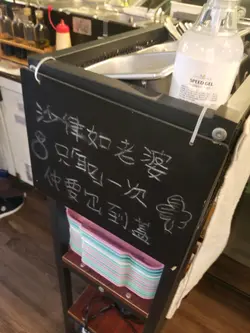 沙律如老婆
只取一次
仲要包到蓋
SPEED GEL